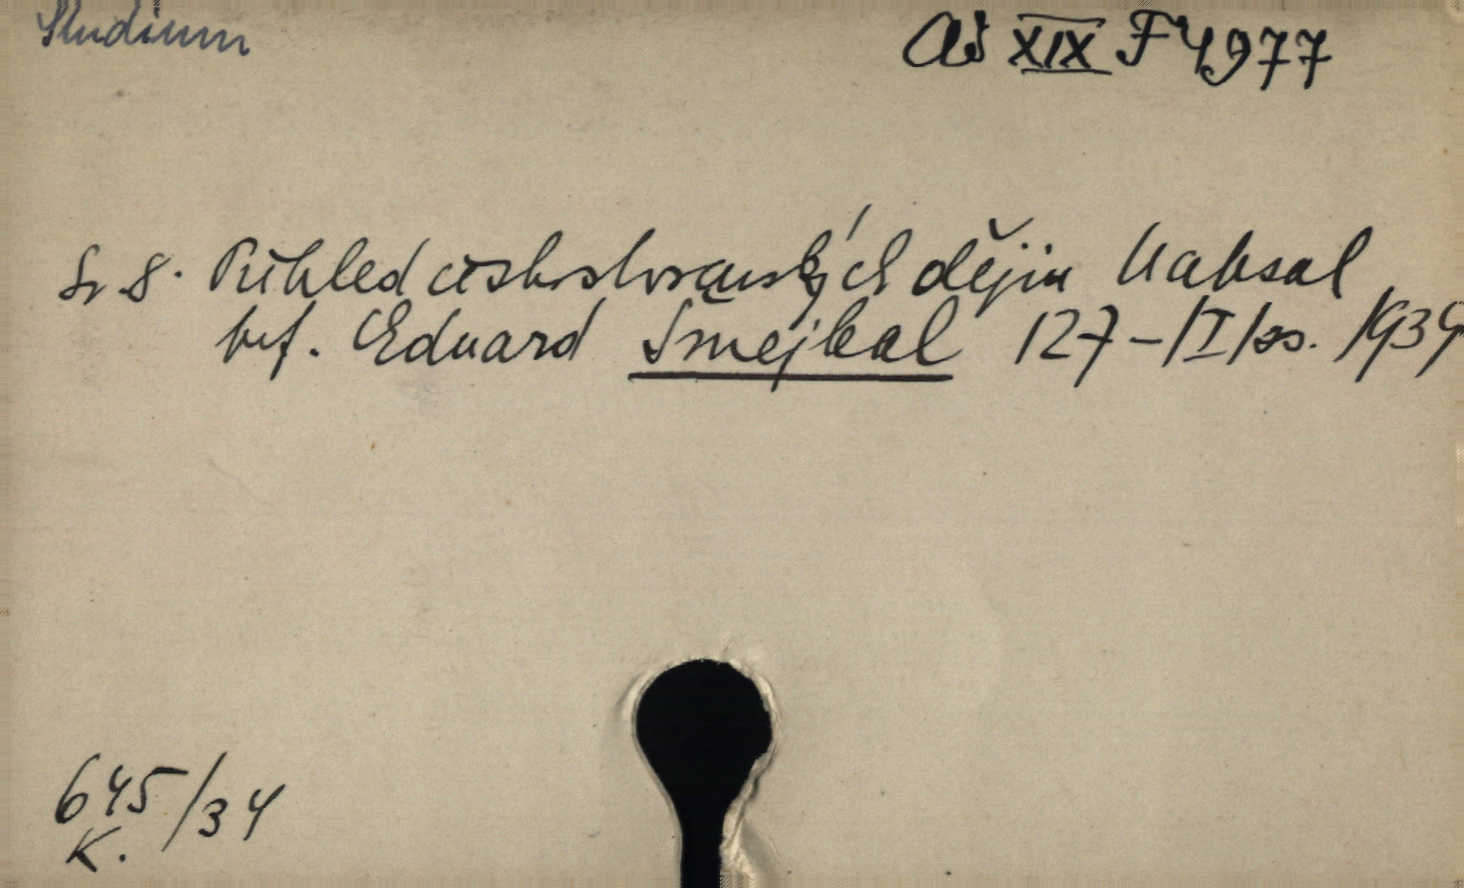 Studium
Aš XIX F 4977
Sv 8. Přehled československých dějin Napsal
prof. Eduard Šmejkal 127 - /I/ ss. /1934
645/34
K.